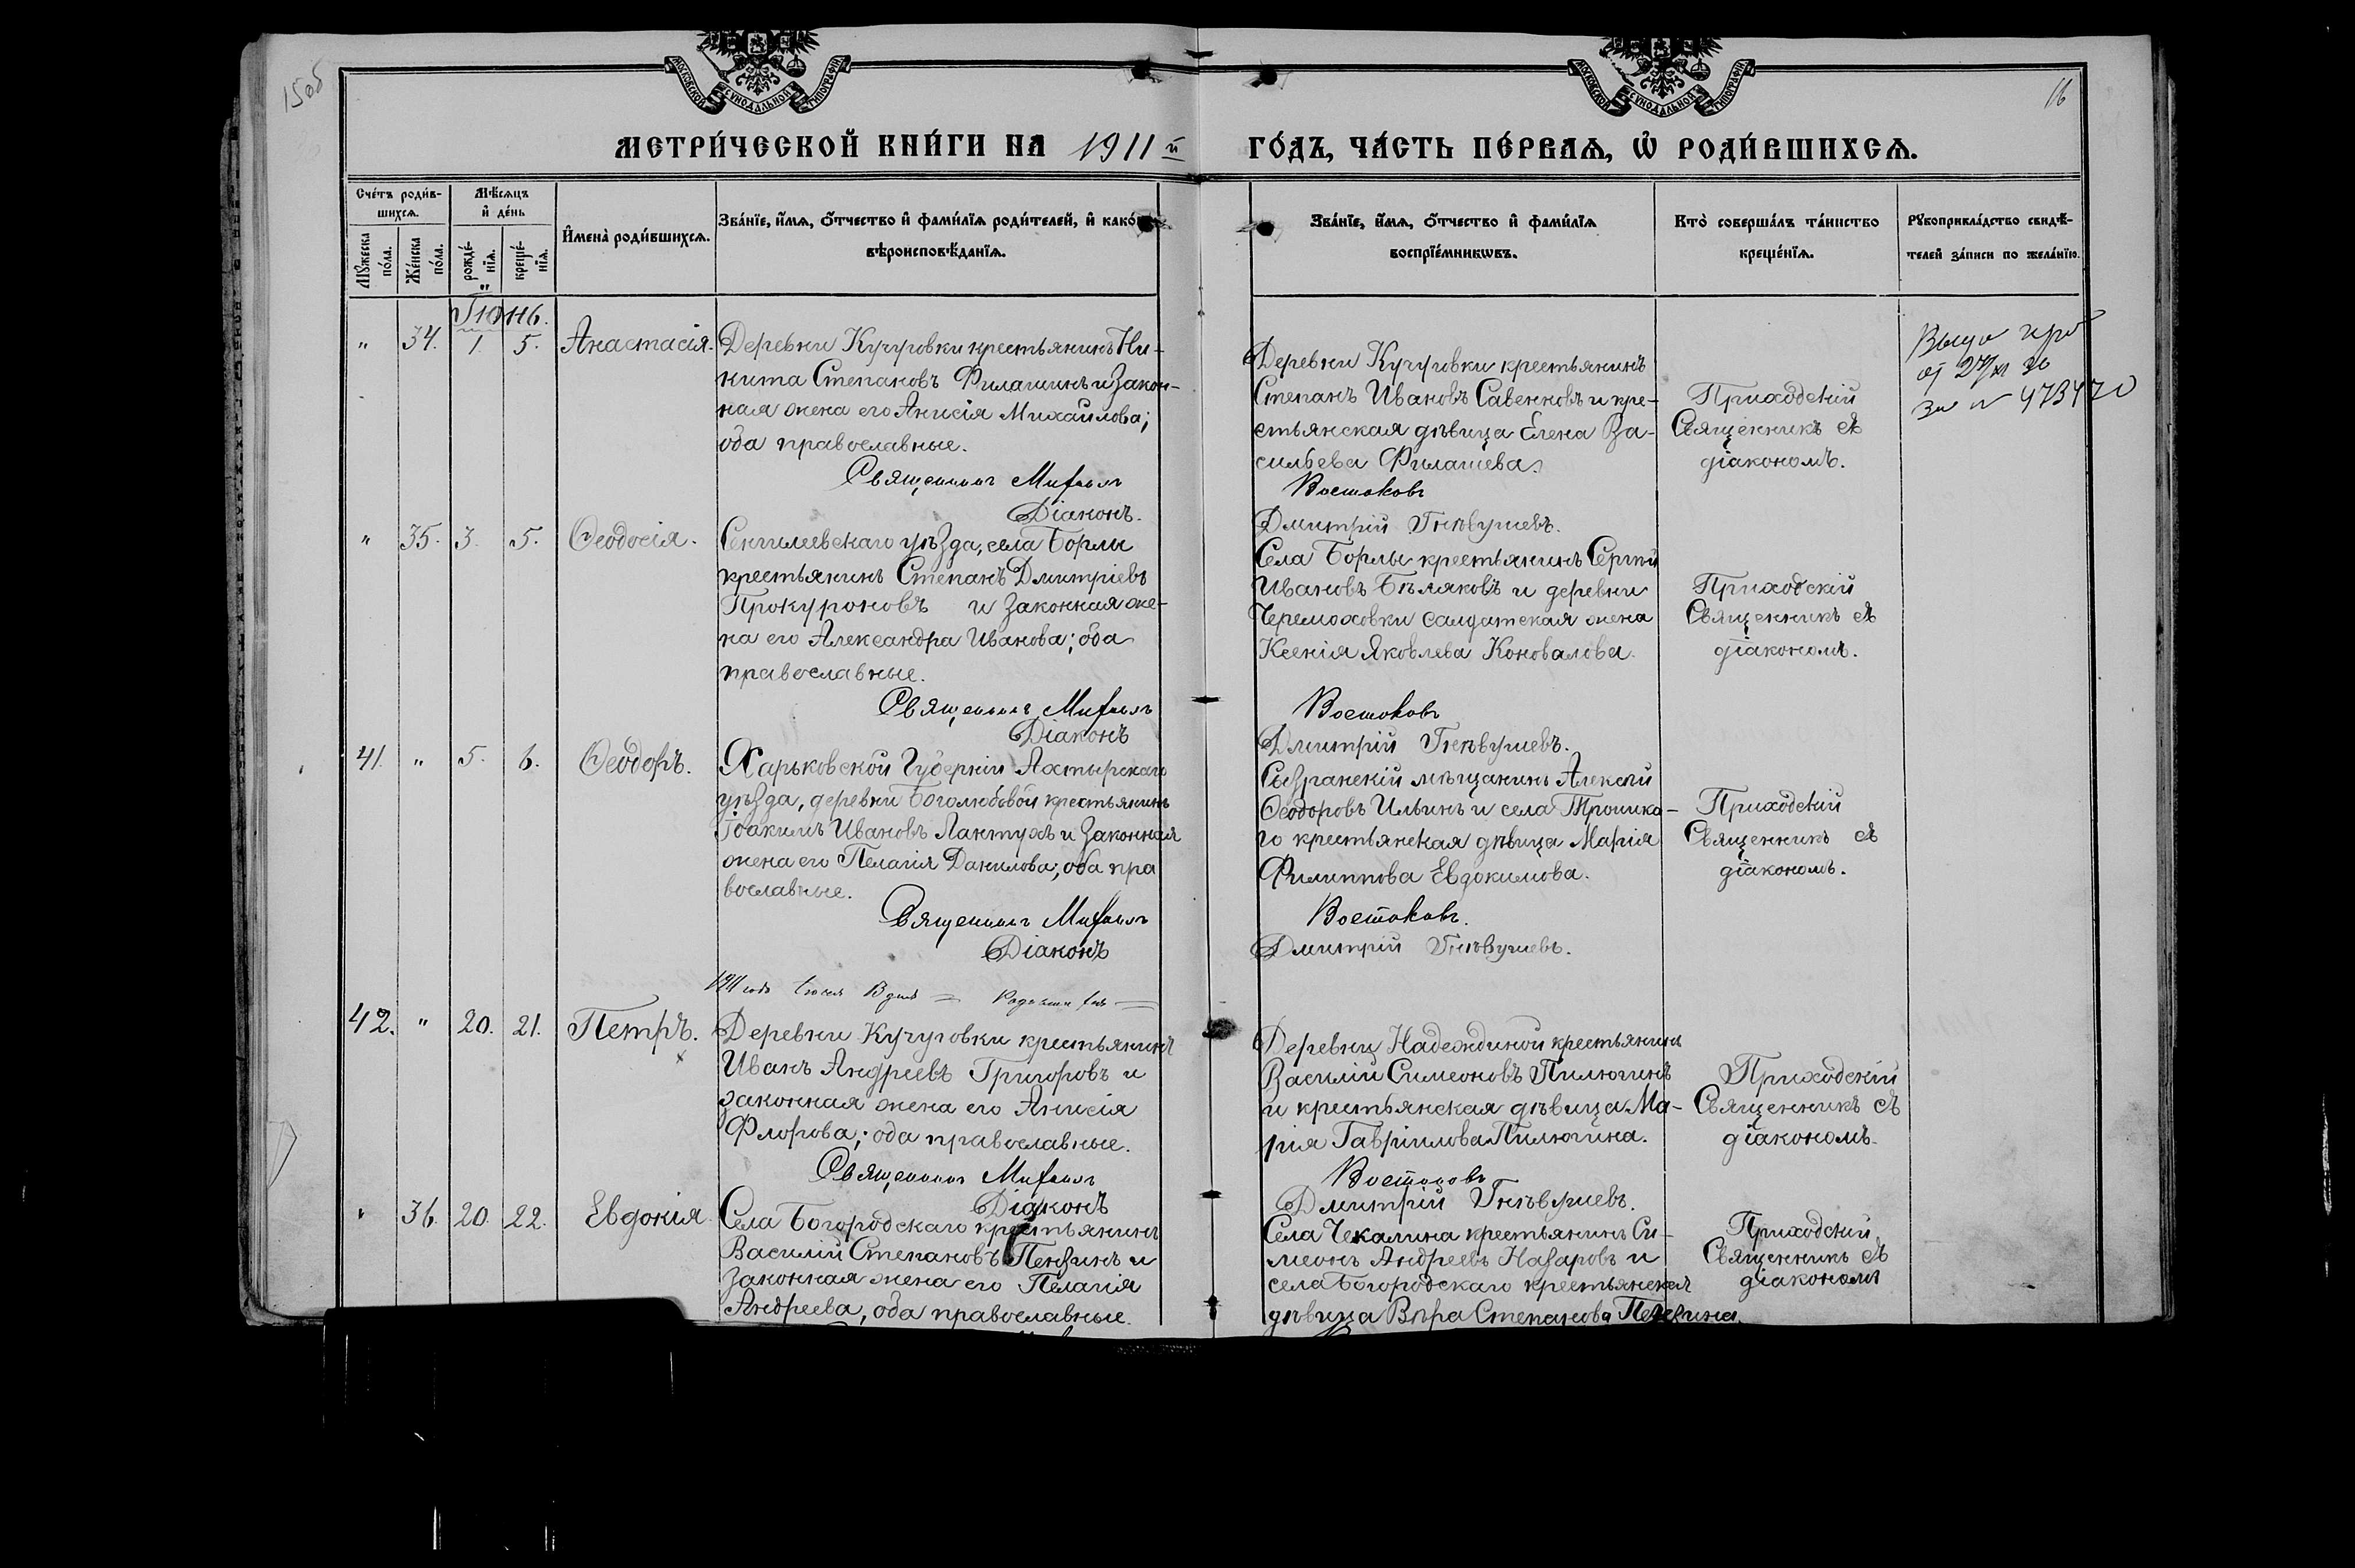 150б
16
МОСКОВСКОЙ СѴНОДАЛЬНОЙ ТИПОГРАФІИ
МОСКОВСКОЙ СѴНОДАЛЬНОЙ ТИПОГРАФІИ
МЕТРИ́ЧЕСКОЙ КНИ́ГИ НА 1911й ГО́ДЪ, ЧА́СТЬ ПЕ́РВАѦ, Ѡ҆ РОДИ́ВШИХСѦ.
Сче́тъ роди́в-
шихсѧ.
Мꙋ́жеска по́ла.
Же́нска по́ла.
Мѣ́сѧцъ
и҆ де́нь
рожде́-
нїѧ.
креще́-
нїѧ.
И҆мена̀ роди́вшихсѧ.
Зва́нїе, и҆́мѧ, ѻ҆́тчество и҆ фами́лїѧ роди́телей, и҆ како́гѡ
вѣроисповѣ́данїѧ.
Зва́нїе, и҆́мѧ, ѻ҆́тчество и҆ фами́лїѧ
воспрїе́мникѡвъ.
Кто̀ соверша́лъ та́инство
креще́нїѧ.
Рꙋкоприкла́дство свидѣ́-
телей за́писи по жела́нїю.
Іюнь.
" 34. 1. 5. Анастасія.
Деревни Кучуровки крестьянинъ Ни-
кита Степановъ Филашинъ и закон-
ная жена его Анисія Михайлова;
оба православные.
Священникъ Михаилъ
Діаконъ.
Деревни Кучуровки крестьянинъ
Степанъ Ивановъ Савенковъ и кре-
стьянская дѣвица Елена Ва-
сильева Филашева.
Востоковъ
Дмитрій Гнѣвушевъ.
Приходскій
Священникъ съ
діакономъ.
от 27/XI 30
473470
" 35. 3. 5. Ѳеодосія.
Сенгилеевскаго уѣзда, села Борлы
крестьянинъ Степанъ Дмитріевъ
Прокуроновъ и законная же-
на его Александра Иванова; оба
православные.
Священникъ Михаилъ
Діаконъ
Села Борлы крестьянинъ Сергій
Ивановъ Бѣляковъ и деревни
Черемоховки салдатская жена
Ксенія Яковлева Коновалова.
Востоковъ
Дмитрій Гнѣвушевъ.
Приходскій
Священникъ съ
діакономъ.
41. " 5. 6. Ѳеодоръ.
Харьковской Губерніи Ахтырскаго
уѣзда, деревни Боголюбовой крестьянинъ
Іоакимъ Ивановъ Лантухъ и законная
жена его Пелагія Данилова; оба пра
вославные.
Священникъ Михаилъ
Діаконъ
Сызранскій мѣщанинъ Алексій
Ѳеодоровъ Ильинъ и села Троицка-
го крестьянская дѣвица Марія
Филиппова Евдокимова.
Востоковъ.
Дмитрій Гнѣвушевъ.
Приходскій
Священникъ съ
діакономъ.
1911 года
42. " 20. 21. Петръ.
Деревни Кучуровки крестьянинъ
Иванъ Андреевъ Григоровъ и
законная жена его Анисія
Флорова; оба православные.
Священникъ Михаилъ
Діаконъ
Деревни Надеждиной крестьянинъ
Василій Симеоновъ Пилюгинъ
и крестьянская дѣвица Ма-
рія Гавріилова Пилюгина.
Востоковъ
Дмитрій Гнѣвушевъ.
Приходскій
Священникъ съ
діакономъ.
" 36. 20. 22. Евдокія.
Села Богородскаго крестьянинъ
Василій Степановъ Пензинъ и
законная жена его Пелагія
Андреева, оба православные.
Села Чекалина крестьянинъ Си-
меонъ Андреевъ Назаровъ и
села Богородскаго крестьянская
дѣвица Вѣра Степанова
Приходскій
Священникъ съ
діакономъ